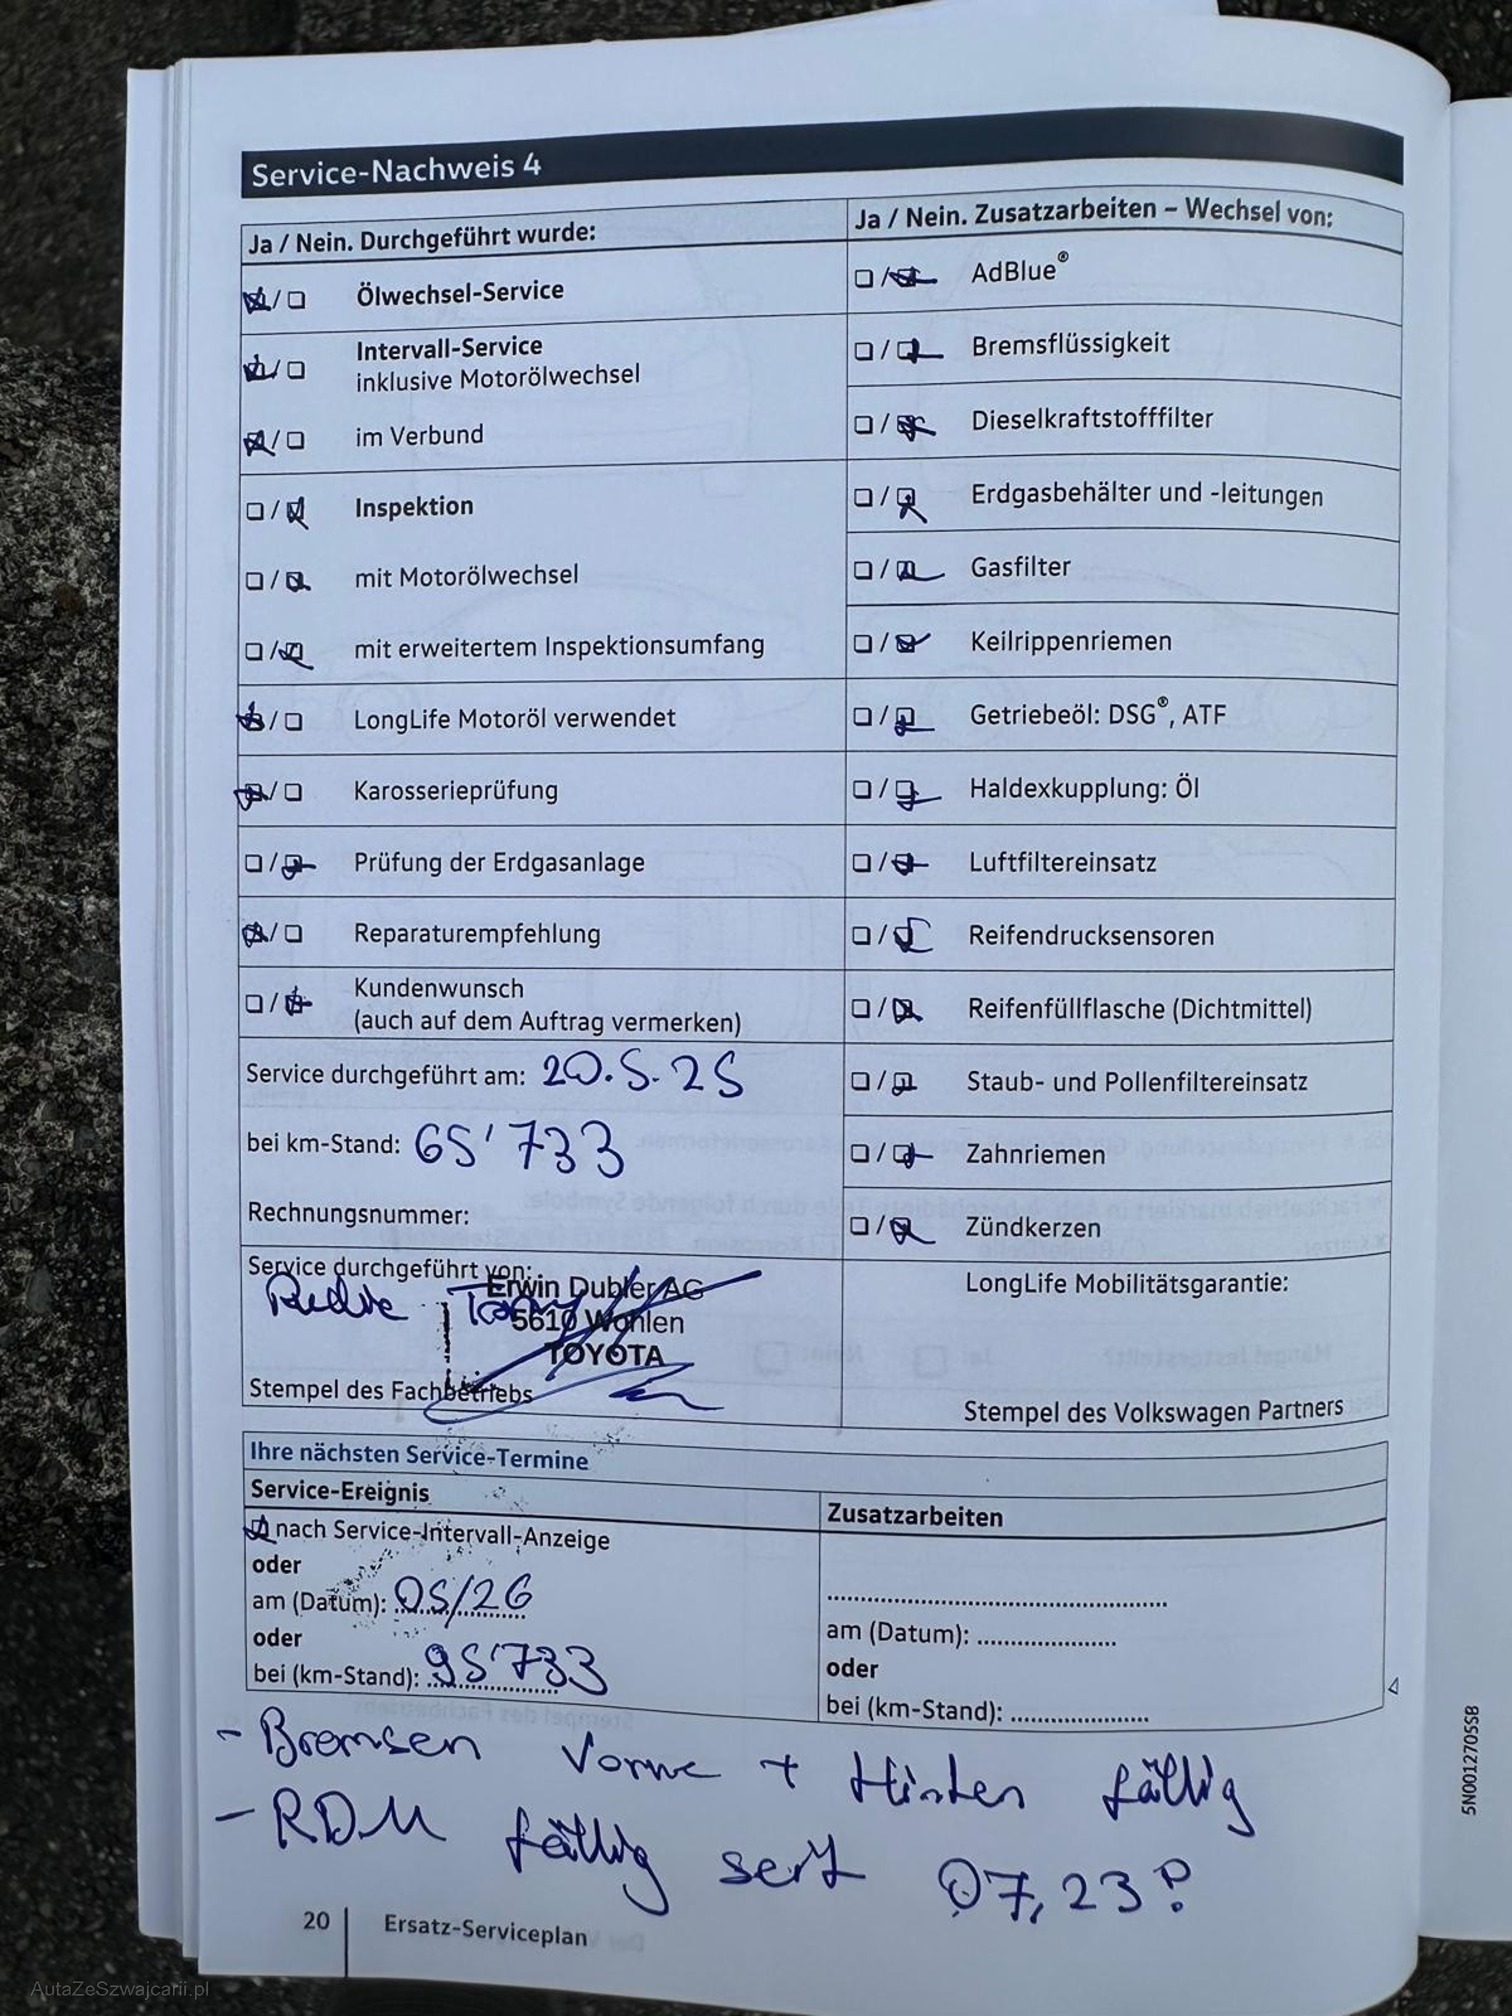 Service-Nachweis 4
Ja / Nein. Durchgeführt wurde:
Ölwechsel-Service
Intervall-Service
inklusive Motorölwechsel
im Verbund
Inspektion
mit Motorölwechsel
mit erweitertem Inspektionsumfang
LongLife Motoröl verwendet
Karosserieprüfung
Prüfung der Erdgasanlage
Reparaturempfehlung
Kundenwunsch
(auch auf dem Auftrag vermerken)
Service durchgeführt am: 20.5.25
bei km-Stand: 65'733
Rechnungsnummer:
Service durchgeführt von:
Erwin Dubler AG
5610 Wohlen
TOYOTA
Stempel des Fachbetriebs
Ja / Nein. Zusatzarbeiten – Wechsel von:
AdBlue®
Bremsflüssigkeit
Dieselkraftstofffilter
Erdgasbehälter und -leitungen
Gasfilter
Keilrippenriemen
Getriebeöl: DSG®, ATF
Haldexkupplung: Öl
Luftfiltereinsatz
Reifendrucksensoren
Reifenfüllflasche (Dichtmittel)
Staub- und Pollenfiltereinsatz
Zahnriemen
Zündkerzen
LongLife Mobilitätsgarantie:
Stempel des Volkswagen Partners
Ihre nächsten Service-Termine
Service-Ereignis
nach Service-Intervall-Anzeige
oder
am (Datum): 05/26
oder
bei (km-Stand): 95'733
Zusatzarbeiten
am (Datum): ......................
oder
bei (km-Stand): ......................
- Bremsen Vorne + Hinten fällig
- RDM fällig seit 07,23?
20 Ersatz-Serviceplan
5N0012705SB
AutaZeSzwajcarii.pl